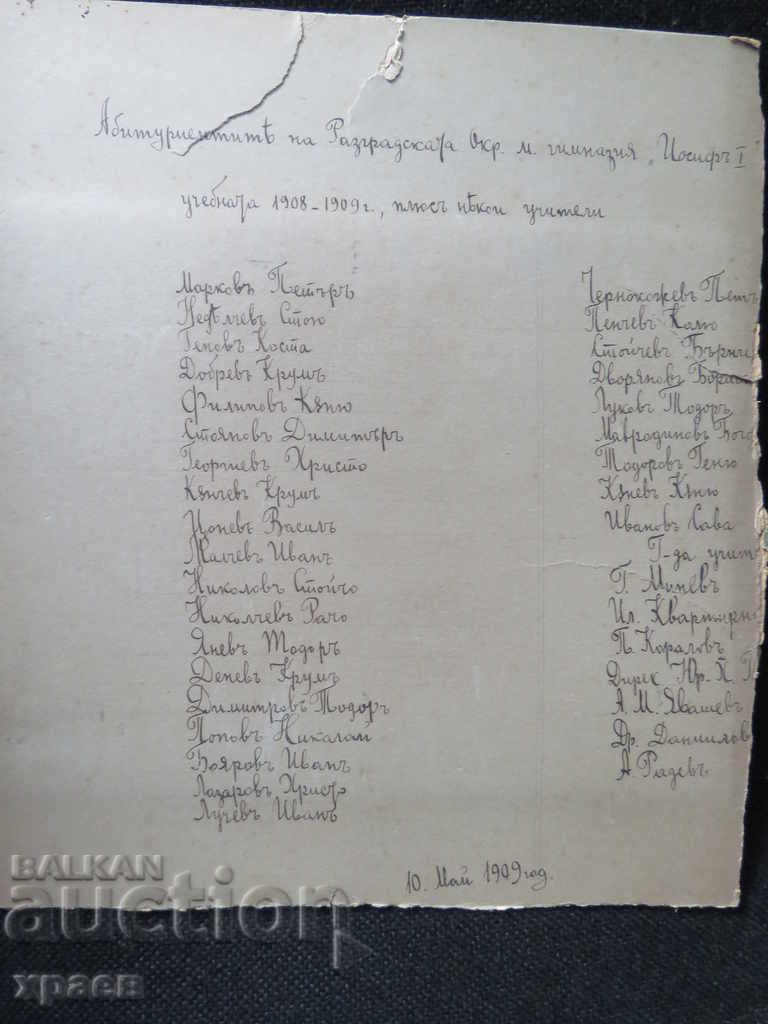 Абитуриентитѣ на Разградската Окр. м. гимназия „Иосифъ I"
учебната 1908-1909 г., плюсъ нѣкои учители
Марковъ Петъръ
Недѣлчевъ Стою
Геновъ Коста
Добревъ Крумъ
Филиповъ Кѫню
Стояновъ Димитъръ
Георгиевъ Христо
Кѫнчевъ Крумъ
Ионевъ Василъ
Малчевъ Иванъ
Николовъ Стойчо
Николчевъ Рачо
Яневъ Тодоръ
Деневъ Крумъ
Димитровъ Тодоръ
Поповъ Николай
Бояровъ Иванъ
Лазаровъ Христо
Лучевъ Иванъ
Чернокожевъ Петъ
Пенчевъ Калю
Стойчевъ
Дворяновъ Борис
Луковъ Тодоръ
Мавродиновъ Бог
Тодоровъ Геню
Кѫневъ Кѫню
Ивановъ Сава
Г-да учит
Г. Моневъ
Ил. Квартирн
П. Кораловъ
Дирек Юр. П.
А. М. Явашевъ
Др. Даниилов
А. Радевъ
10. Май 1909 год.
BALKAN
auction
храев